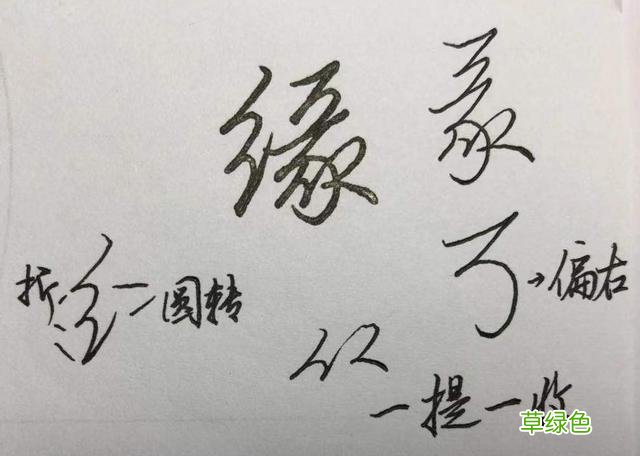 缘 彖
折 圆转 偏右
一提一收
草绿色